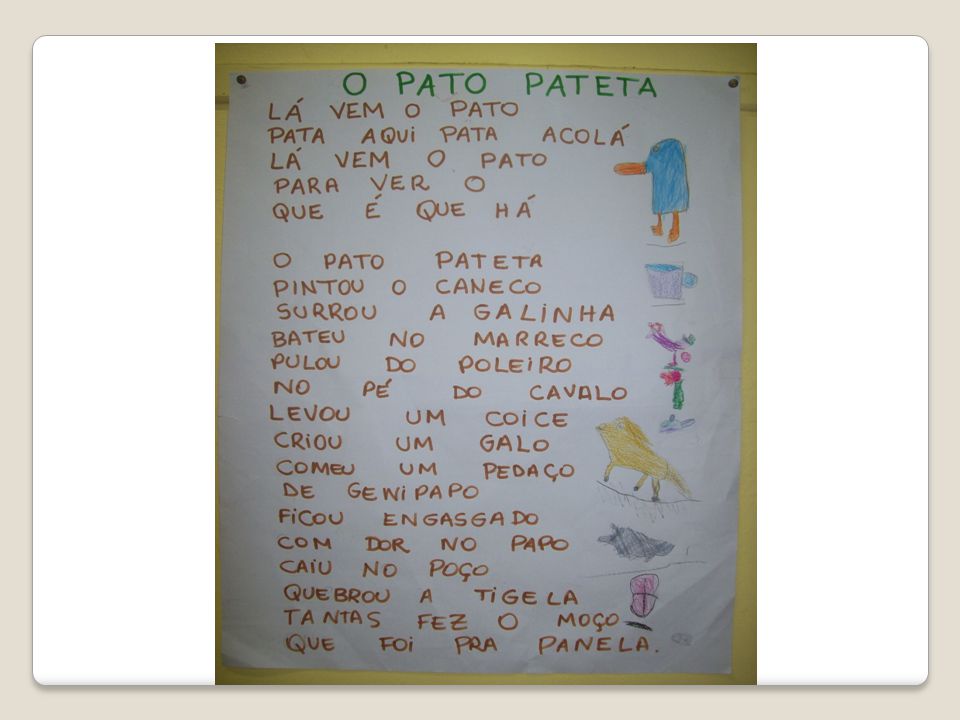 O PATO PATETA
LÁ VEM O PATO
PATA AQUI PATA ACOLÁ
LÁ VEM O PATO
PARA VER O
QUE É QUE HÁ
O PATO PATETA
PINTOU O CANECO
SURROU A GALINHA
BATEU NO MARRECO
PULOU DO POLEIRO
NO PÉ DO CAVALO
LEVOU UM COICE
CRIOU UM GALO
COMEU UM PEDAÇO
DE GENIPAPO
FICOU ENGASGADO
COM DOR NO PAPO
CAIU NO POÇO
QUEBROU A TIGELA
TANTAS FEZ O MOÇO
QUE FOI PRA PANELA.